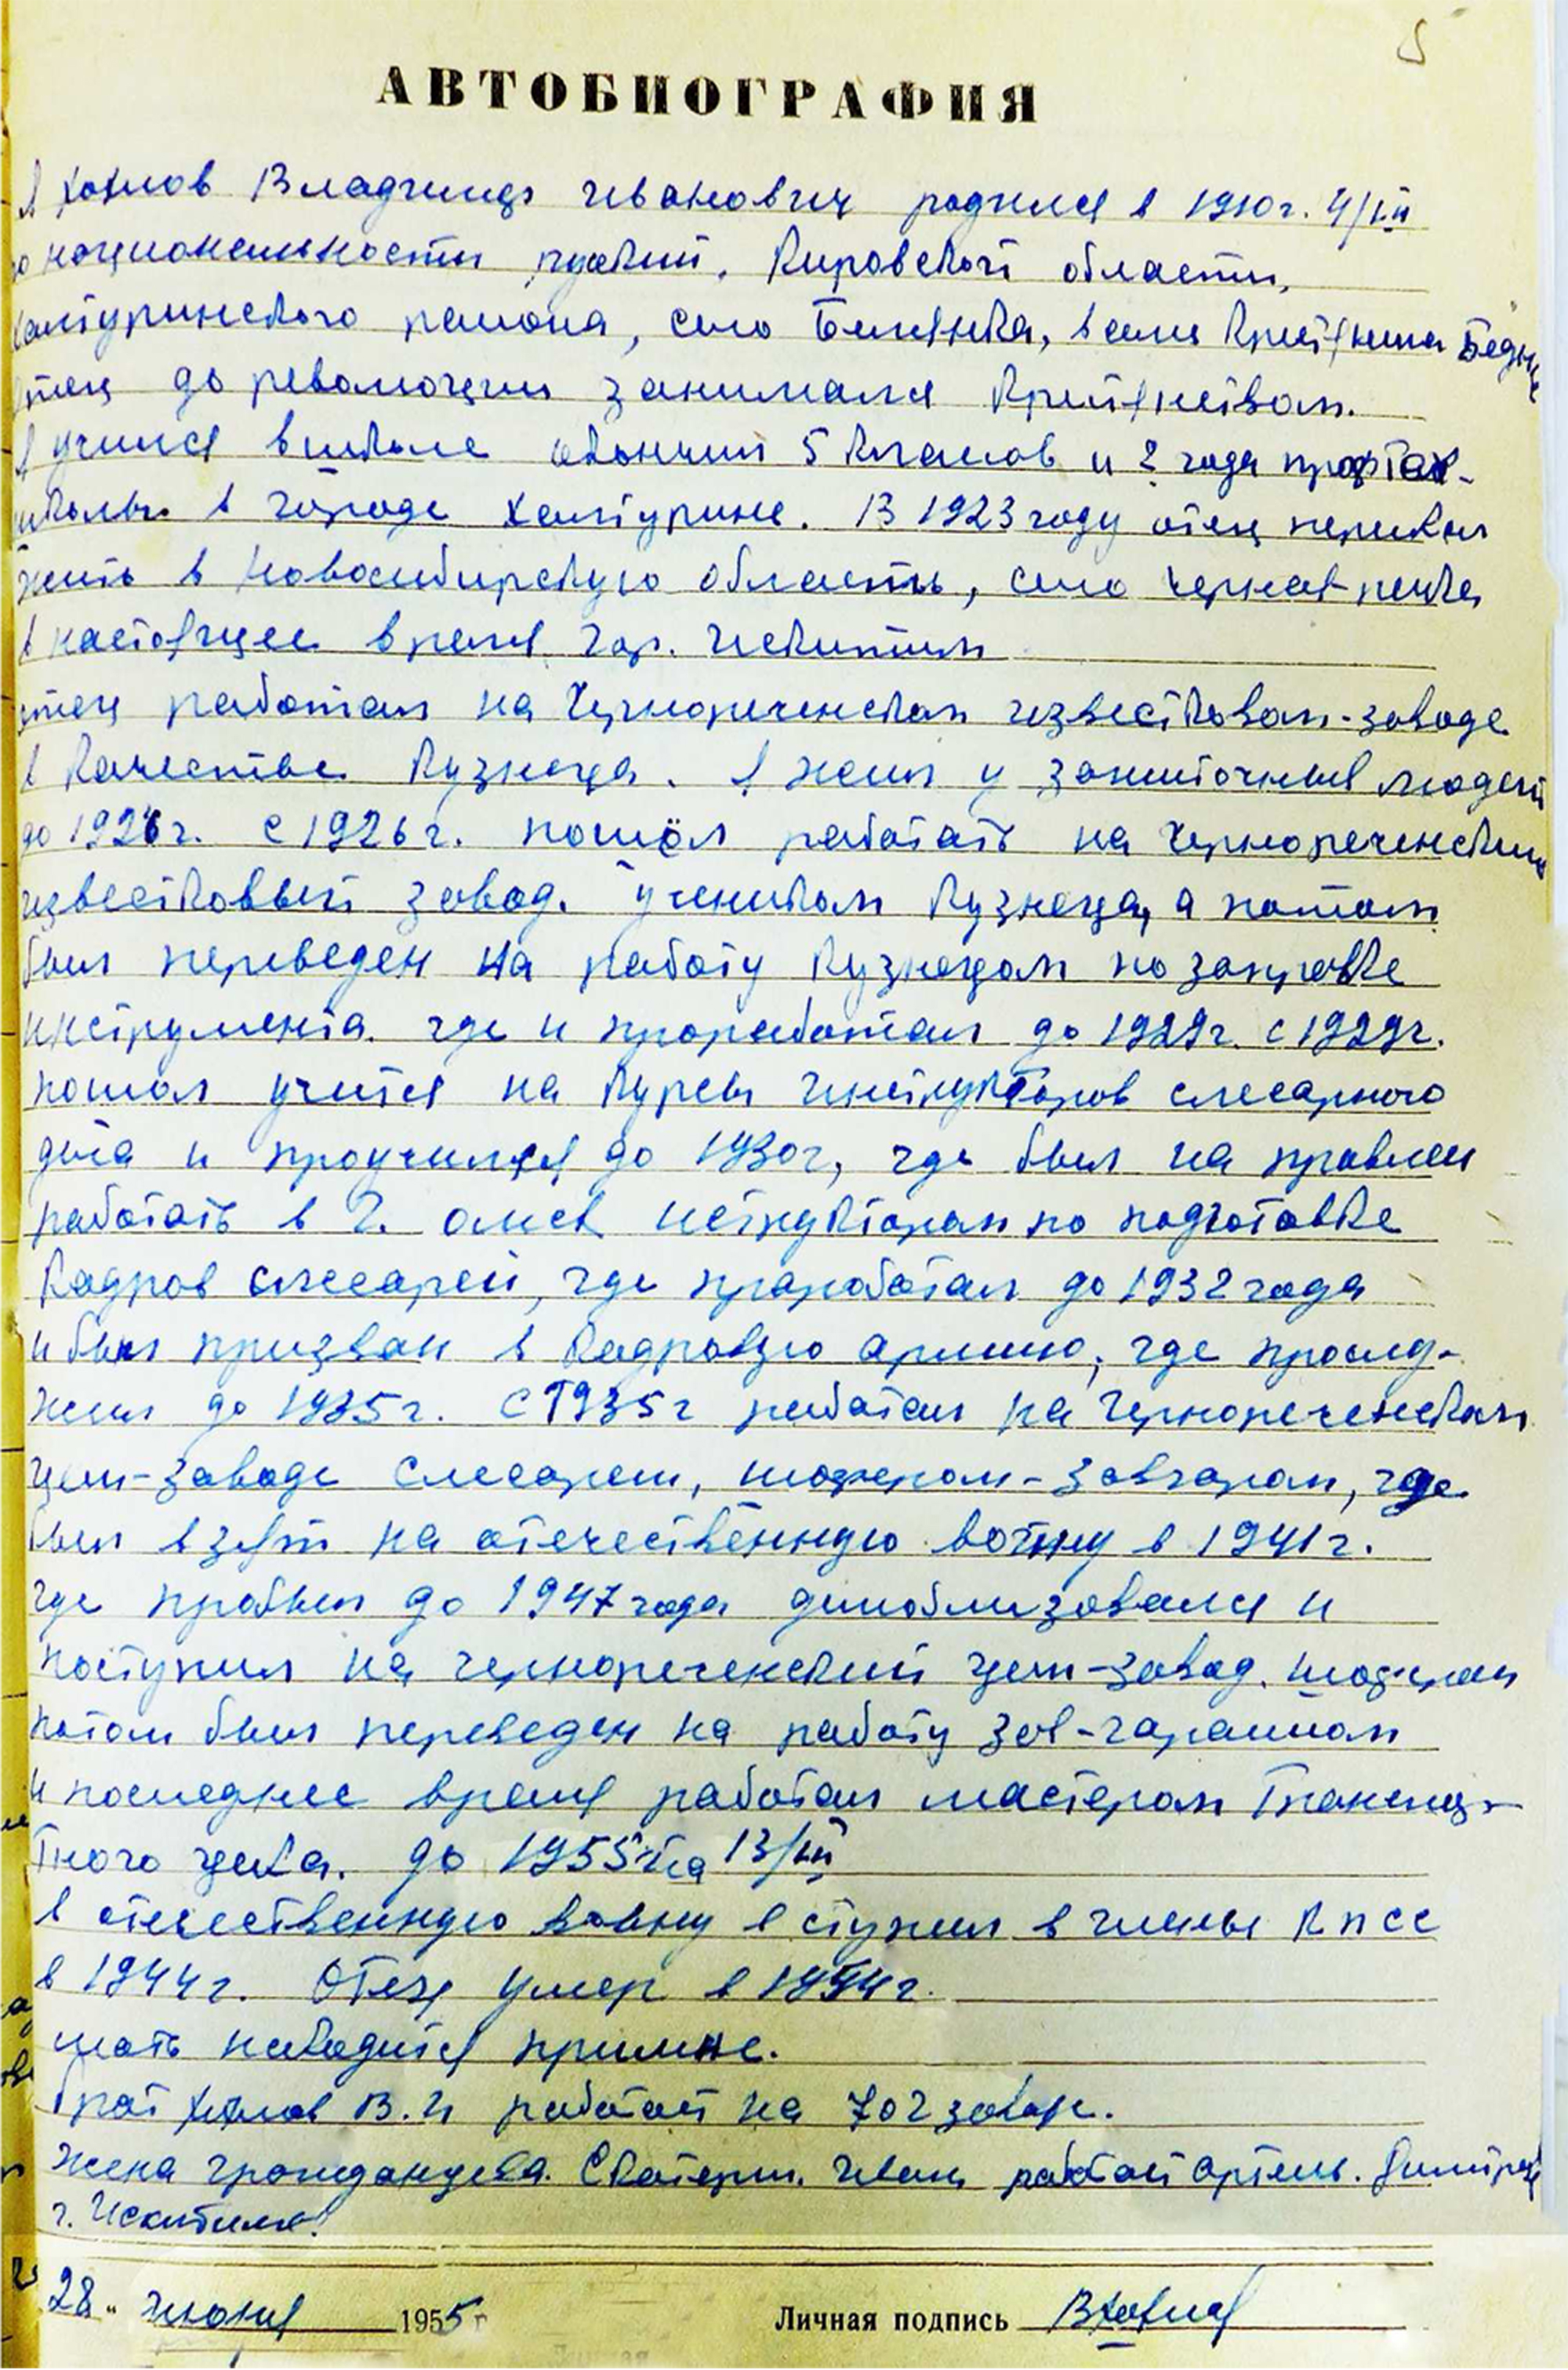 5
АВТОБИОГРАФИЯ
Я Хохлов Владимир Иванович родился в 1910 г. 4/VII
по национальности русский. Кировской области,
Халтуринского района, село в семи Бедн
отец до революции занимался
Я учился в школе окончил 5 класов и 2 года профтех-
школы в городе Халтурине. В 1923 году отец переехал
жить в Новосибирскую область, село
в настоящее время гор. Искитим
отец работал на Чернореченском известковом-заводе
в качестве кузнеца. Я жил у зажиточных людей
до 1926 г. С 1926 г. пошёл работать на Чернореченский
известковый завод. учеником кузнеца, а потом
был переведен на работу кузнецом по заправке
инструмента. где и проработал до 1929 г. с 1929 г.
пошол учится на курсы слесарного
дела и проучился до 1930 г, где был на правлен
работать в г. Омск по подготовке
кадров слесарей, где проработал до 1932 года
и был призван в кадровую армию, где прослу-
жил до 1935 г. С 1935 г работал на Чернореченском
цем-заводе слесарем, шофером-завгаром, где
был взят на отечественную войну в 1941 г.
где пробыл до 1947 года димоблизовался и
поступил на чернореченский цем-завод. шофером
потом был переведен на работу зав-гаражом
и последнее время работал мастером
тного цеха. до 1955 13/VII
в отечественную войну в ступил в члены КПСС
в 1944 г. Отец умер в
мать находится примне.
брат Хохлов В. И работает на 702 заводе.
жена работает артель.
г. Искитима.
28 " июня 1955 г Личная подпись ВХохлов